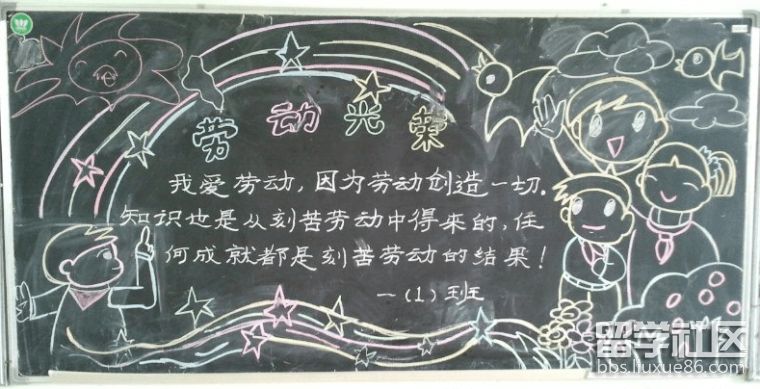 劳动光荣
我爱劳动，因为劳动创造一切.
知识也是从刻苦劳动中得来的，任
何成就都是刻苦劳动的结果！
一（1）班
留学社区
bbs.liuxue86.com